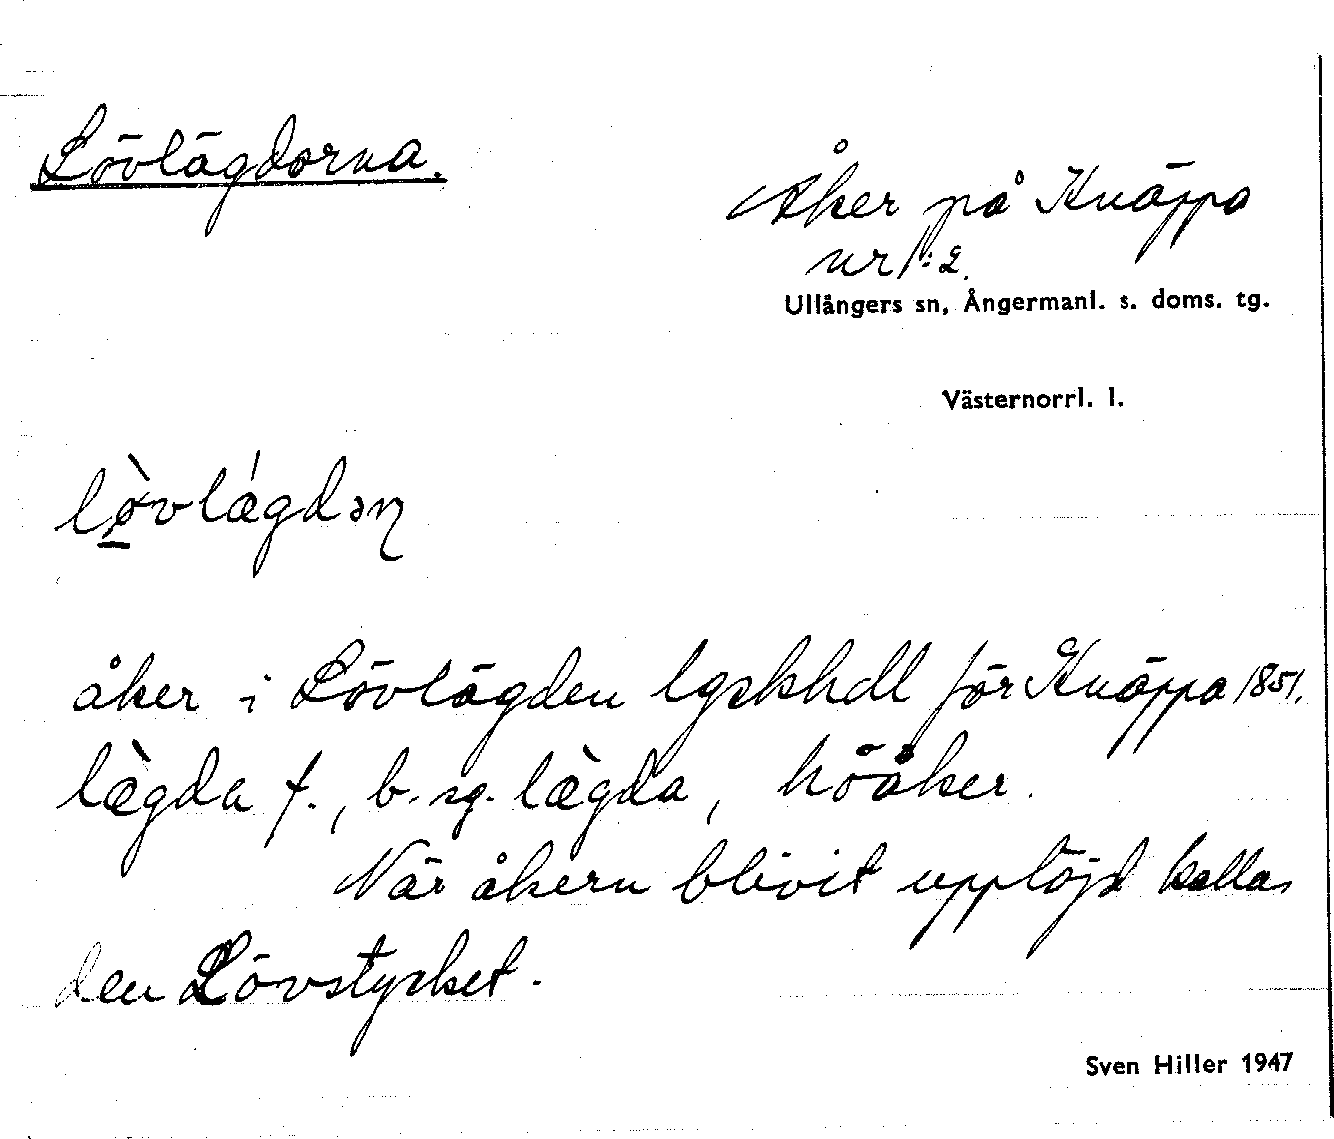 Lövlägdorna.
Åker på Knäppa
nr 1:2.
Ullångers sn, Ångermanl. s. doms. tg.
Västernorrl. l.
lø̀vlǽgdəɳ
åker i Lövlägden lgskhdl för Knäppa 1851.
læ̀gda f., b. sg. læ̀gda, höåker.
När åkern blivit upplöjd kallas
den Lövstycket.
Sven Hiller 1947